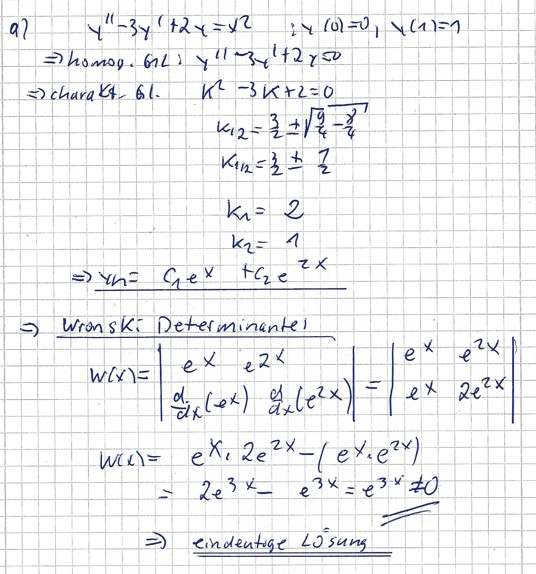 a) y'' - 3y' + 2y = x² ; y(0)=0, y(1)=1
⇒ homog. Gl.: y'' - 3y' + 2y = 0
⇒ charakt. Gl. k² - 3k + 2 = 0
k₁,₂ = 3/2 ± √(9/4 - 8/4)
k₁/₂ = 3/2 ± 1/2
k₁ = 2
k₂ = 1
⇒ yh = C₁e^x + C₂e^(2x)
⇒ Wronski Determinante:
W(x) = | e^x e^2x ; d/dx(e^x) d/dx(e^2x) | = | e^x e^2x ; e^x 2e^2x |
W(x) = e^x · 2e^2x - (e^x · e^2x)
= 2e^3x - e^3x = e^3x ≠ 0
⇒ eindeutige Lösung